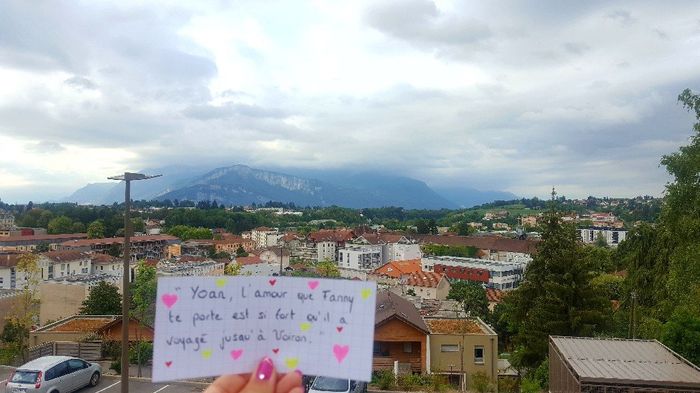 "Yoan, l'amour que Fanny
te porte est si fort qu'il a
voyagé jusqu'à Voiron."